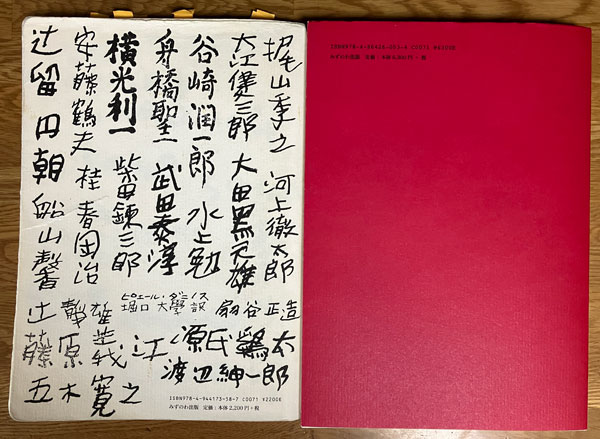 梶山季之
河上徹太郎
大江健三郎
大田黒元雄
谷崎潤一郎
水上勉
舟橋聖一
武田泰淳
横光利一
柴田錬三郎
安藤鶴夫
桂春団治
辻留
円朝
船山馨
扇谷正造
ピエール・ダニノス
堀口大學訳
辻静雄
藤原義江
源氏鶏太
渡辺紳一郎
五木寛之
ISBN978-4-944173-38-7 C0071 ¥2200E
みずのわ出版 定価:本体2,200円+税
ISBN978-4-86426-003-4 C0071 ¥2200E
みずのわ出版 定価:本体